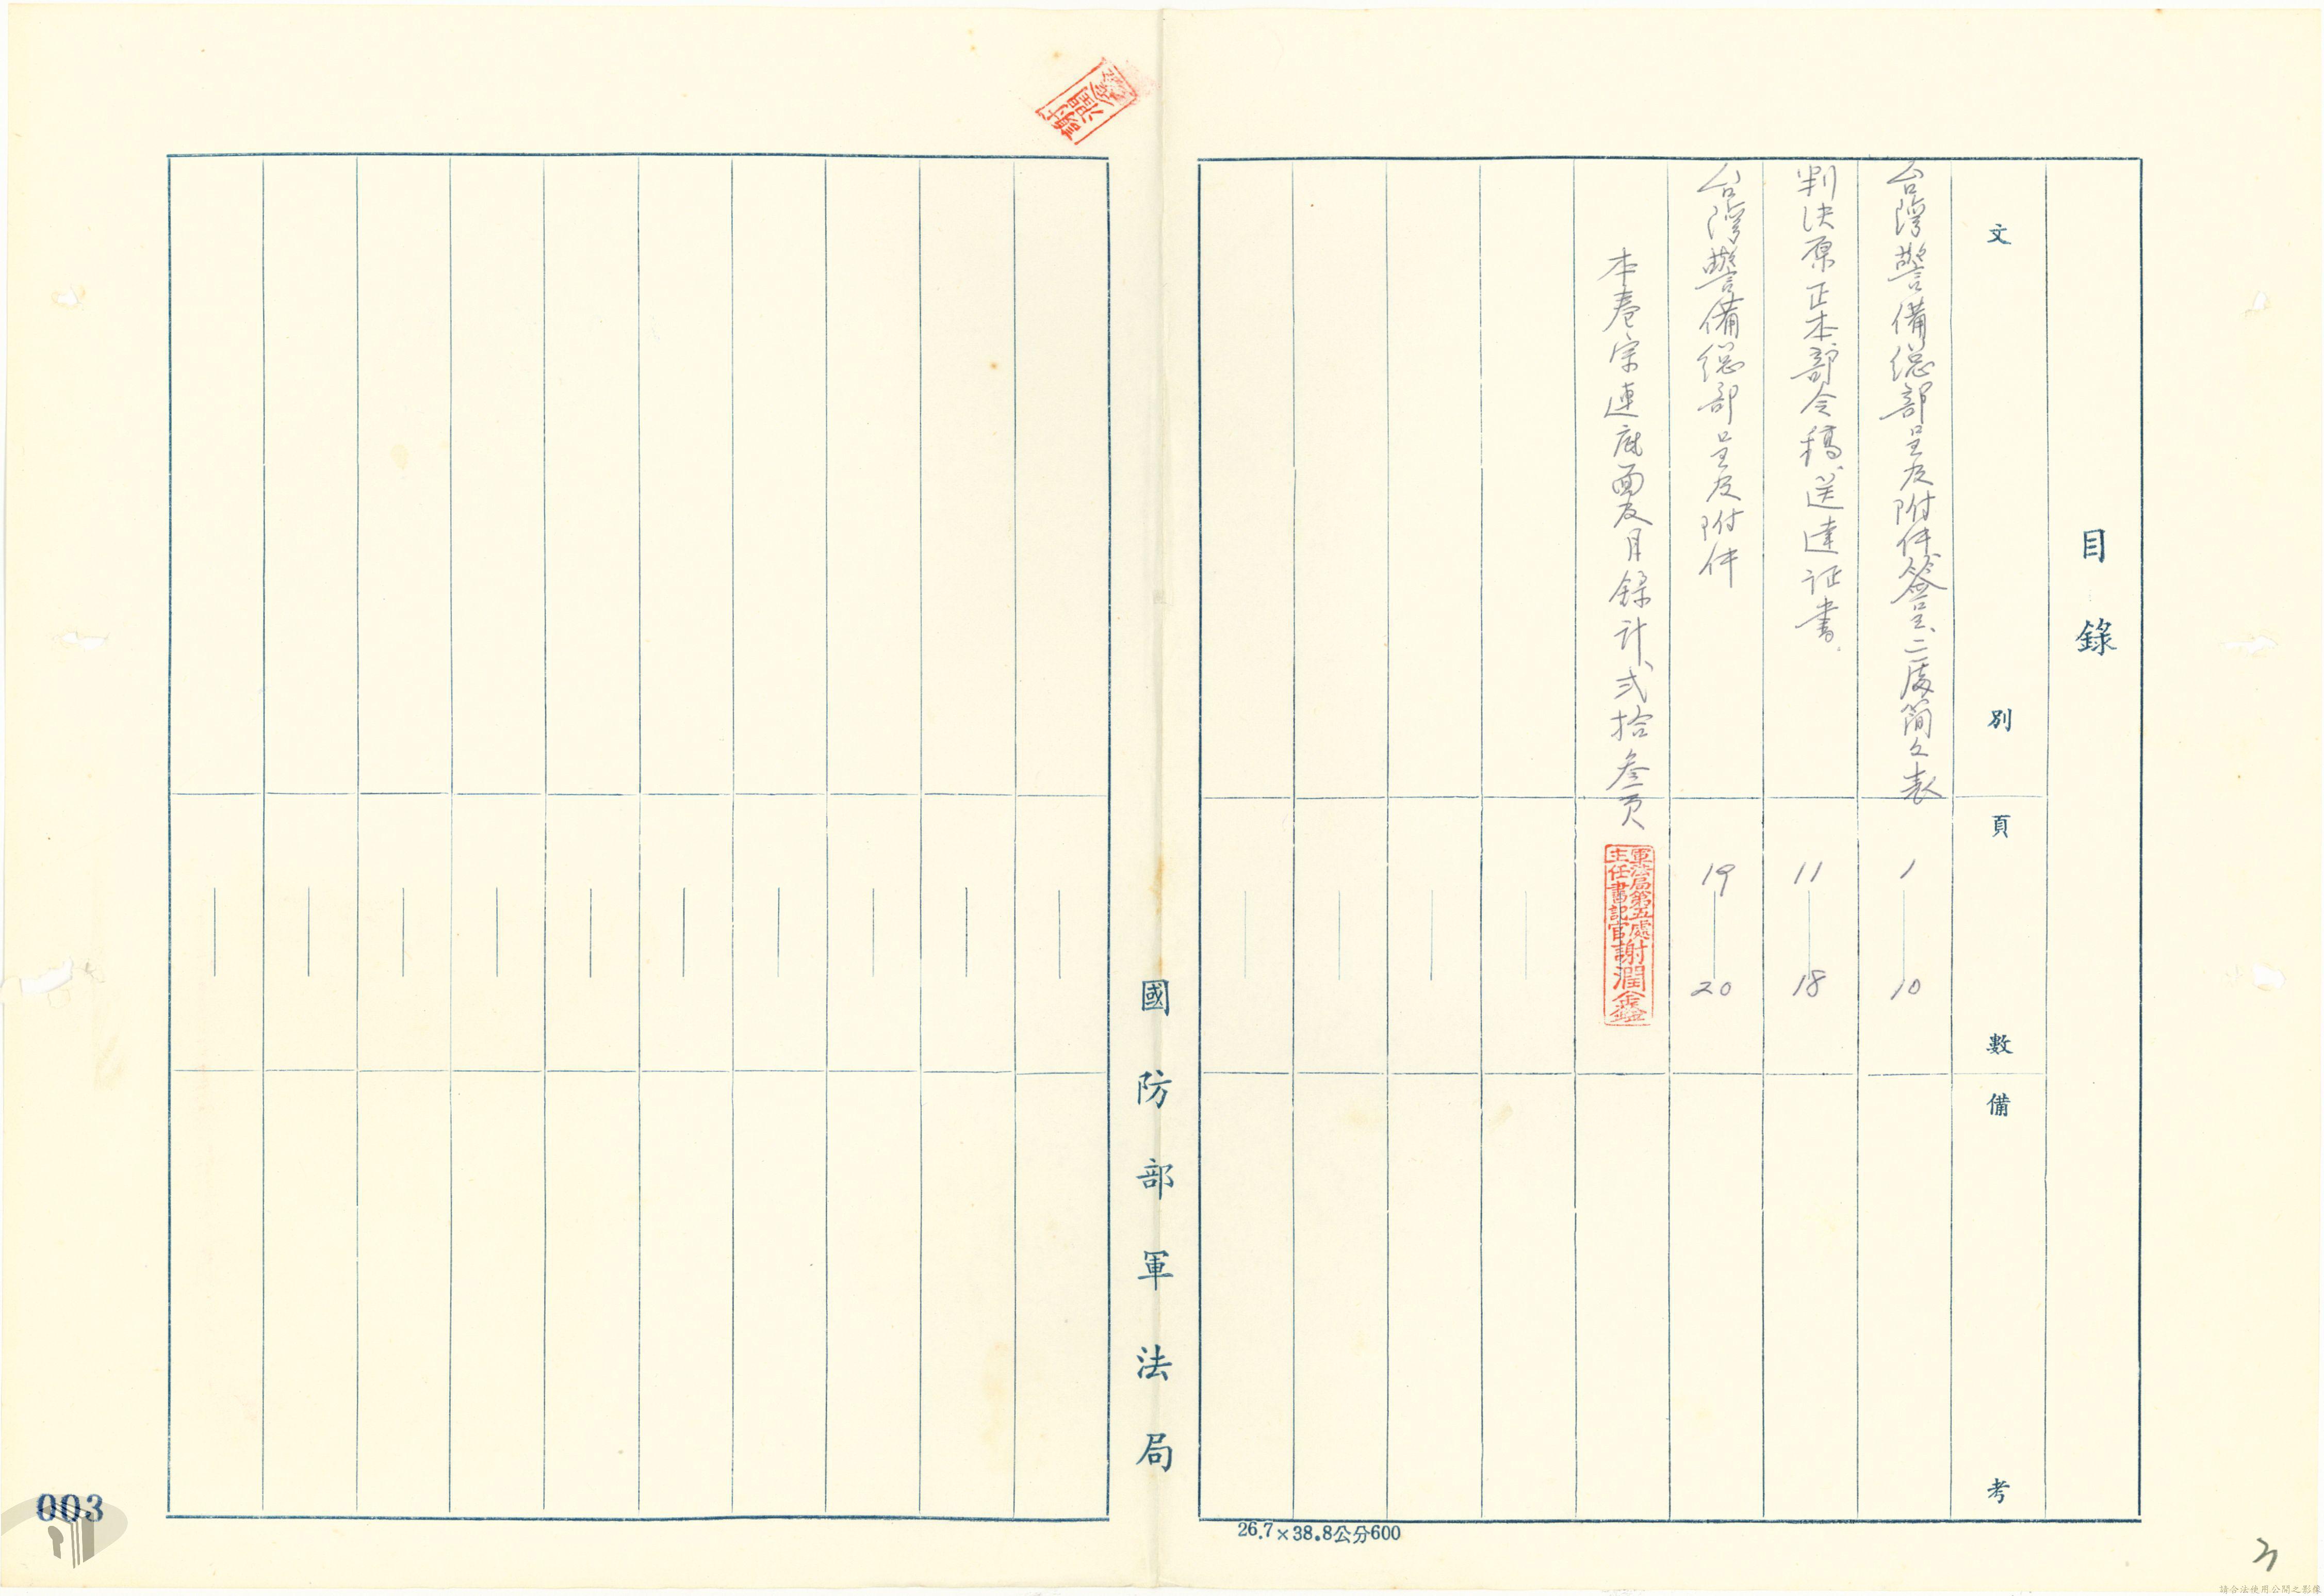 目錄
文別
頁數
備考
台灣警備總部呈及附件簽呈、二處簡文表
1—10
判決原正本部令稿送達証書。
11—18
台灣警備總部呈及附件
19—20
本卷宗連底面及目錄計弍拾叁頁
軍法局第五處
主任書記官謝潤鑫
國防部軍法局
26.7×38.8公分600
003
3
請合法使用公開之影像